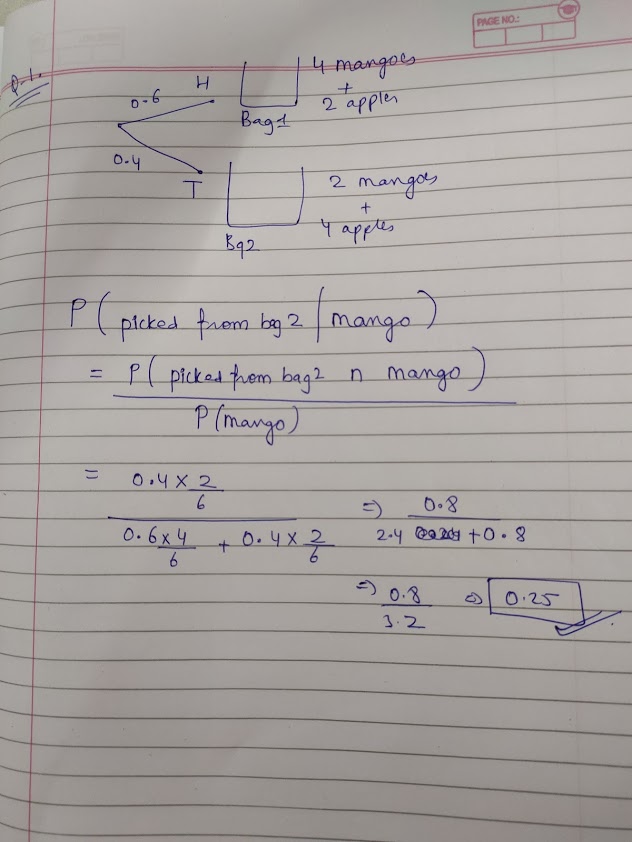 PAGE NO.:
Q.1.
0.6 H 4 mangoes
+
2 apples
Bag1
0.4
T 2 mangoes
+
4 apples
Bg2
P( picked from bg2 | mango )
= P( picked from bag2 ∩ mango )
P(mango)
= 0.4 × 2/6
0.6 × 4/6 + 0.4 × 2/6
⇒ 0.8
2.4 + 0.8
⇒ 0.8/3.2 ⇒ 0.25